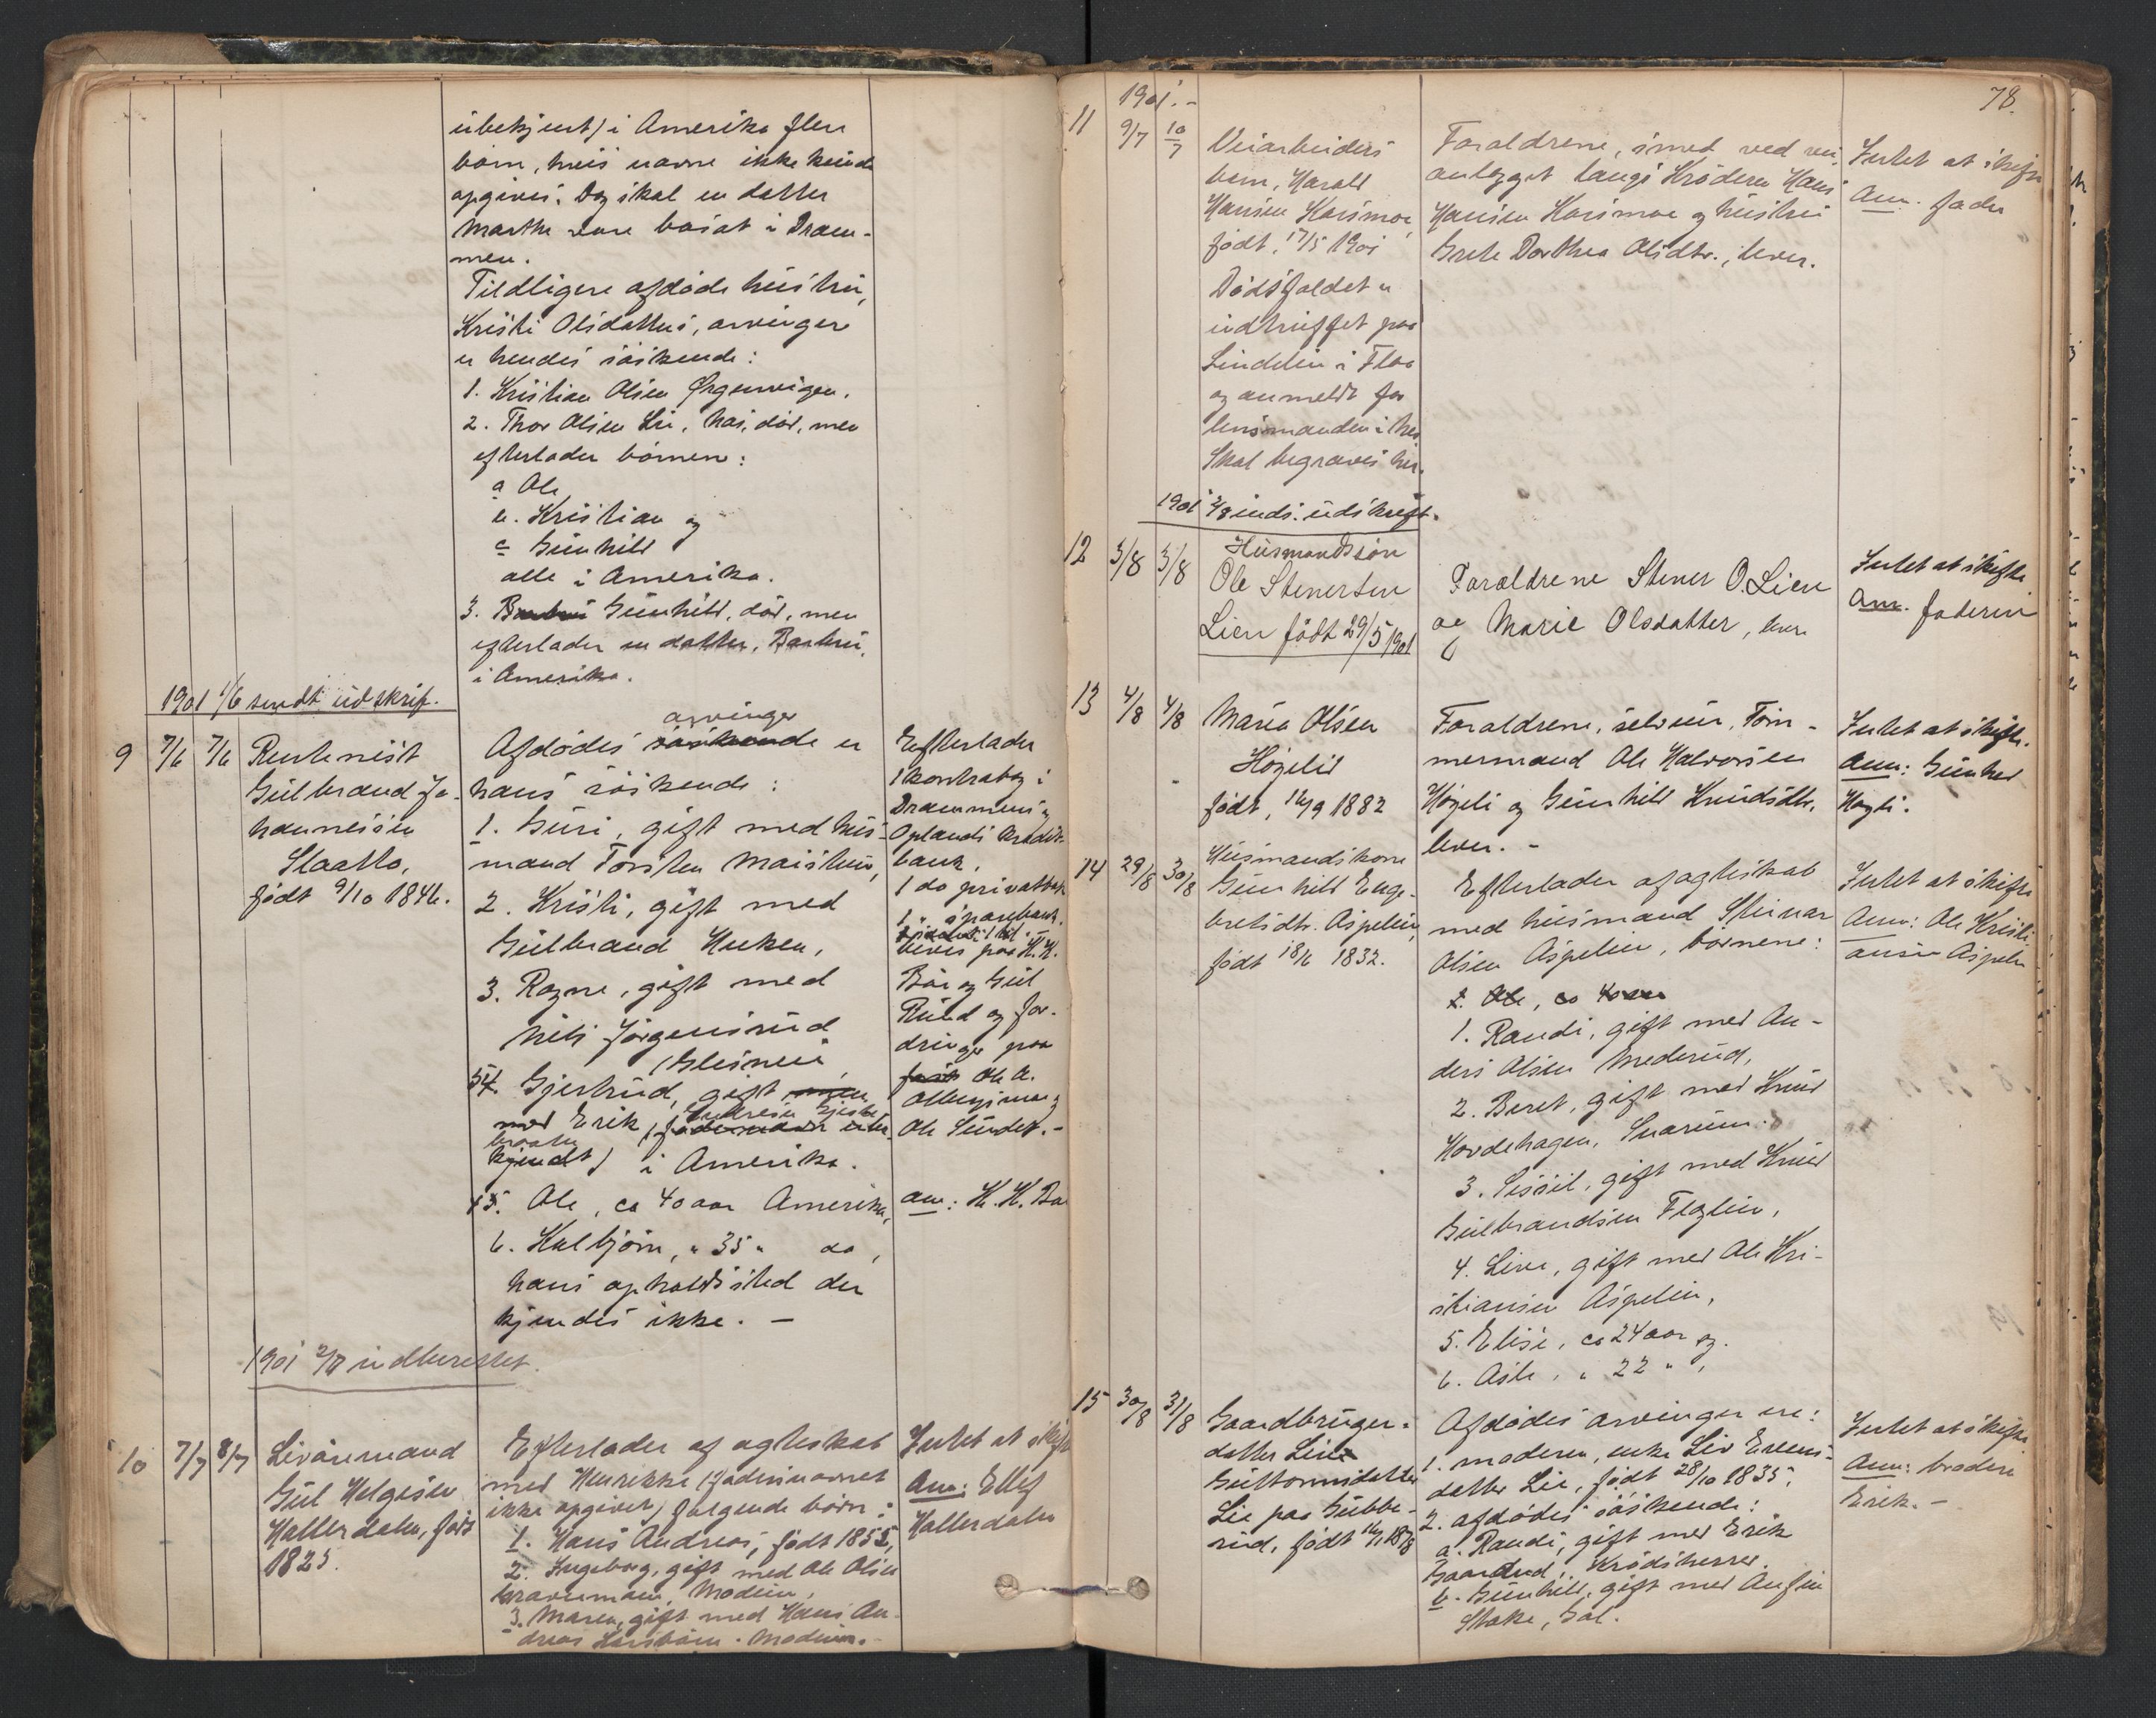 ubekjent) i Amerika flere
børn, hvis navne ikke kunde
opgives. Dog skal en datter
Marthe være bosat i Dram-
men.
Tidligere afdøde hustru,
Kristi Olsdatters, arvinger
er hendes søskende:
1. Kristian Olsen Ørgenvigen.
2. Thor Olsen Lie, død, men
efterlader børnene:
a Ole
b. Kristian og
c Gunhild
alle i Amerika.
3. Gunhild, død, men
efterlader en datter, Barbru,
i Amerika.
1901 1/6 sendt udskrift.
9 7/6 7/6 Rentenist
Gulbrand Jo-
hannessen
Staatto,
født 9/10 1846.
arvinger
Afdødes søskende er
hans søskende:
1. Guri, gift med hus-
mand Torsten Maistuen,
2. Kristi, gift med
Gulbrand Huken,
3. Ragne, gift med
Nils Jørgensrud
(Glesne)
4. Gjertrud, gift
med Erik
kjendt) i Amerika.
5. Ole, ca 40 aar Amerika,
6. Kulbjørn, " 35 " do,
hans opholdssted der
kjendes ikke. -
Efterlader
1 kontrabog i
Drammens og
Oplands kredit-
bank,
1 do privatbank
1 " sparebank.
beros paa H. H.
Bøe og Gul
Ruud og for-
dringer paa
Ole A.
Ole Sundet. -
anm: H. H. Bøe
1901 2/7 indberettet.
10 7/7 8/7 Livøremand
Gul Helgesen
Hallerdalen, født
1825.
Efterlader af ægteskab
med Henrikke (fadersnavnet
ikke opgivet) følgende børn:
1. Hans Andreas, født 1855,
2. Ingeborg, gift med Ole Olsen
Modum,
3. Maren, gift med Hans An-
dreas Modum. -
Intet at skifte
Anm: Ellef
Hallerdalen
78.
1901. -
11 9/7 10/7 Veiarbeiders
barn, Harald
Hansen Korsmoe,
født, 17/5 1901
Dødsfaldet er
indtruffet paa
Lindelien i Flaa
og anmeldt for
lensmanden i Nes.
Skal begraves her.
Forældrene, smed ved vei-
anlægget langs Krøderen Hans
Hansen Korsmoe og hustru
Grete Dorthea Olsdtr., lever.
Intet at skifte
Anm. fader
1901 3/8 inds. udskrift.
12 3/8 3/8 Husmandssøn
Ole Stenersen
Lien født 29/5 1901
Forældrene Stener O. Lien
og Marie Olsdatter, lever
Intet at skifte
Anm. faderen
13 4/8 4/8 Maria Olsen
Høgelid
født, 12/9 1882
Forældrene, selveier, Tøm-
mermand Ole Halvorsen
Høgeli og Gunhild Knudsdtr.
lever. -
Intet at skifte.
Anm: Gunhild
Høgli.
14 29/8 30/8 Husmandskone
Gunhild Enge-
bretsdtr. Aspelien,
født 18/6 1832.
Efterlader af ægteskab
med husmand Steinar
Olsen Aspelien, børnene:
1. Ole, ca 40 aar
1. Randi, gift med An-
ders Olsen Mederud,
2. Beret, gift med Knud
Hovdehagen, Snarum.
3. Sissil, gift med Knud
Gulbrandsen Fløglien,
4. Live, gift med Ole Kri-
stiansen Aspelien,
5. Elise, ca 24 aar og
6. Asle, " 22 ",
Intet at skifte
Anm: Ole Kristi-
ansen Aspelien
15 30/8 31/8 Gaardbruger-
datter Live
Guttormsdatter
Lie paa Gubbe-
rud, født
Afdødes arvinger ere:
1. moderen, enke Liv Evens-
datter Lie, født 28/10 1835,
2. afdødes søskende:
a. Randi, gift med Erik
Gaardrud, Krødsherred.
b. Gunhild, gift med Anfin
Stake, Gol.
Intet at skifte
Anm: broderen
Erik. -